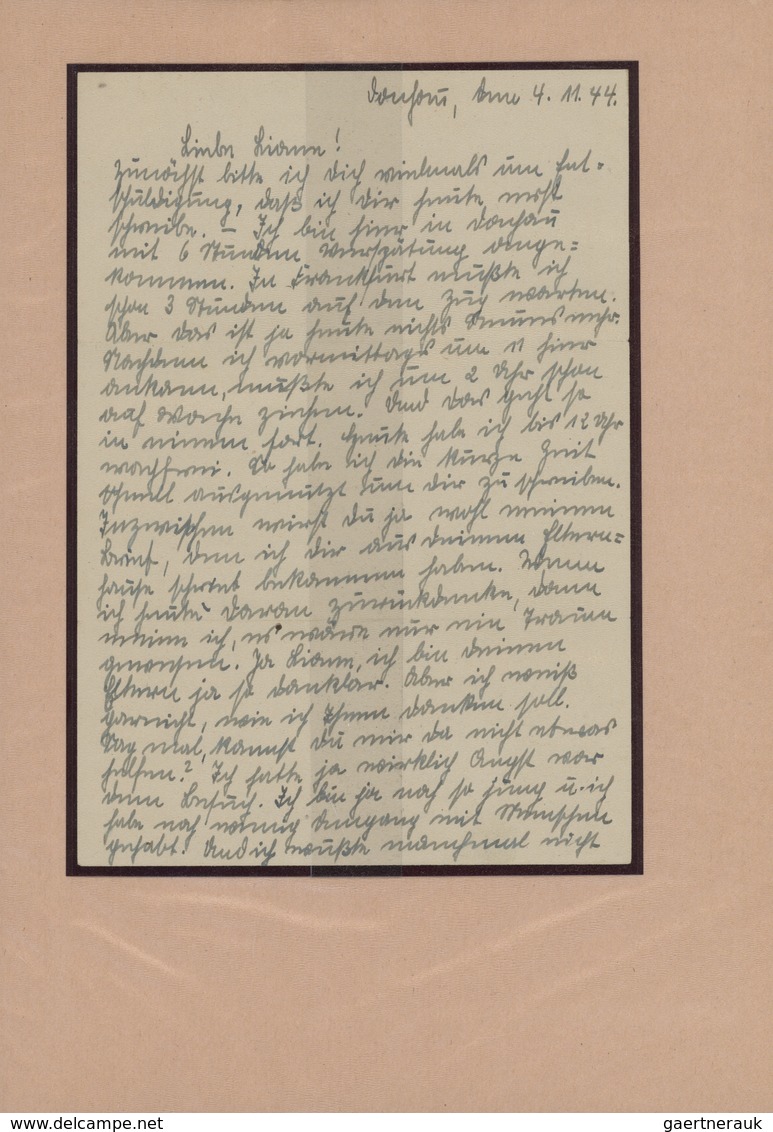 Dachau, den 4. 11. 44.
Liebe Liane!
Zunächst bitte ich Dich vielmals um Ent=
schuldigung, daß ich Dir heute erst
schreibe. – Ich bin hier in Dachau
mit 6 Stunden Verspätung ange=
kommen. In Frankfurt mußte ich
schon 3 Stunden auf den Zug warten.
Aber das ist ja heute nichts Neues mehr.
Nachdem ich vormittags um 11 hier
ankam, mußte ich um 2 Uhr schon
auf Wache ziehen. Und das geht so
in einem fort. Heute habe ich bis 12 Uhr
wachfrei. So habe ich die kurze Zeit
schnell ausgenützt um Dir zu schreiben.
Inzwischen wirst Du ja wohl meinen
Brief, den ich Dir aus Deinem Eltern=
hause schrieb bekommen haben. Wenn
ich heute daran zurückdenke, dann
meine ich, es wäre nur ein Traum
gewesen. Ja Liane, ich bin Deinen
Eltern ja so dankbar. Aber ich weiß
garnicht, wie ich Ihnen danken soll.
Sag mal, kannst Du mir da nicht etwas
helfen? Ich hatte ja wirklich Angst vor
dem Besuch. Ich bin ja noch so jung u. ich
habe noch wenig Umgang mit Menschen
gehabt. Und ich wußte manchmal nicht
www.delcampe.net
gaertnerauk